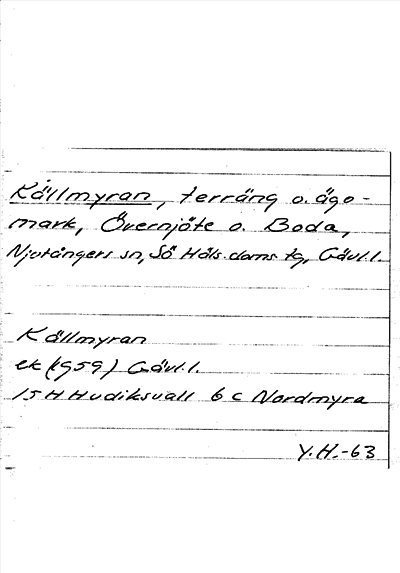 Källmyran, terräng o. ägo-
mark, Övernjöte o. Boda,
Njutångers sn, Sö Häls. doms. tg, Gävl.l.
Källmyran
ek (1959) Gävl.l.
15 H Hudiksvall 6 c Nordmyra
Y.H.-63